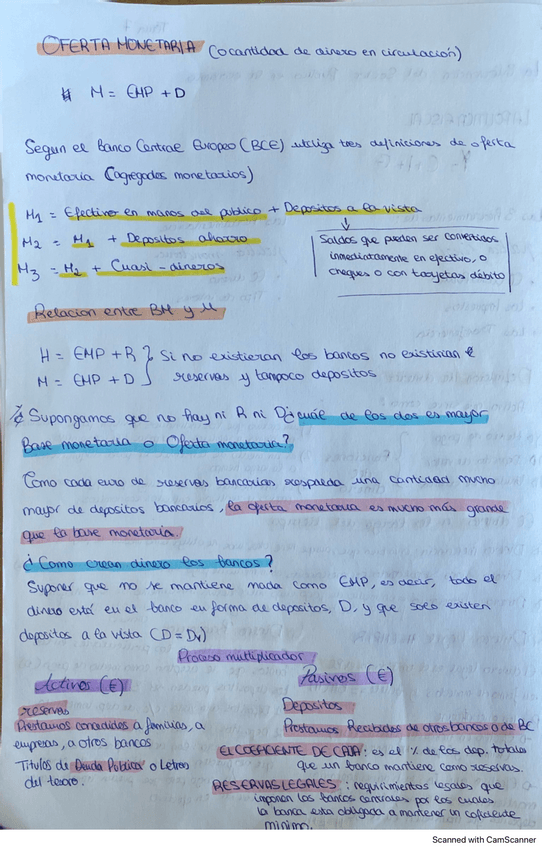 OFERTA MONETARIA (o cantidad de dinero en circulación)
M = EMP + D
Segun el Banco Central Europeo (BCE) utiliza tres definiciones de oferta
monetaria (agregados monetarios)
M1 = Efectivo en manos del publico + Depositos a la vista
M2 = M1 + Depositos ahorro
M3 = M2 + Cuasi-dineros
Saldos que pueden ser convertidos
inmediatamente en efectivo, o
cheques o con tarjetas débito
Relacion entre BM y M
H = EMP + R } Si no existieran los bancos no existirian
M = EMP + D } reservas y tampoco depositos
Supongamos que no hay ni R ni D ¿cuál de los dos es mayor
Base monetaria o Oferta monetaria?
Como cada euro de reservas bancarias respalda una cantidad mucho
mayor de depositos bancarios, la oferta monetaria es mucho más grande
que la base monetaria.
¿Como crean dinero los bancos?
Suponer que no se mantiene nada como EMP, es decir, todo el
dinero está en el banco en forma de depositos, D, y que solo existen
depositos a la vista (D = D1)
Proceso multiplicador
Activos (€)
reservas
Prestamos concedidos a familias, a
empreas, a otros bancos
Titulos de Deuda Pública o Letras
del tesoro.
Pasivos (€)
Depositos
Prestamos Recibidos de otros bancos o de BC
EL COEFICIENTE DE CAJA: es el % de los dep. totales
que un banco mantiene como reservas.
RESERVAS LEGALES: requirimientos legales que
imponen los bancos centrales por los cuales
la banca esta obligada a mantener un coficiente
minimo.
Scanned with CamScanner